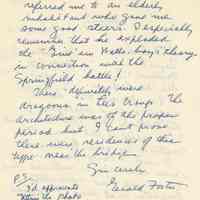 referred me to an elderly
inhabitant who gave me
some good steers. I especially
remember that he exploded
the "Grid in Watts' boys" theory
in connection with the
Springfield battle!
There definitely were
dragoons in this Group. The
architecture was of the proper
period but I can't prove
there were residences of this
type near the bridge.
Sincerely
Gerald Foster
P.S.
I'd appreciate
the photo